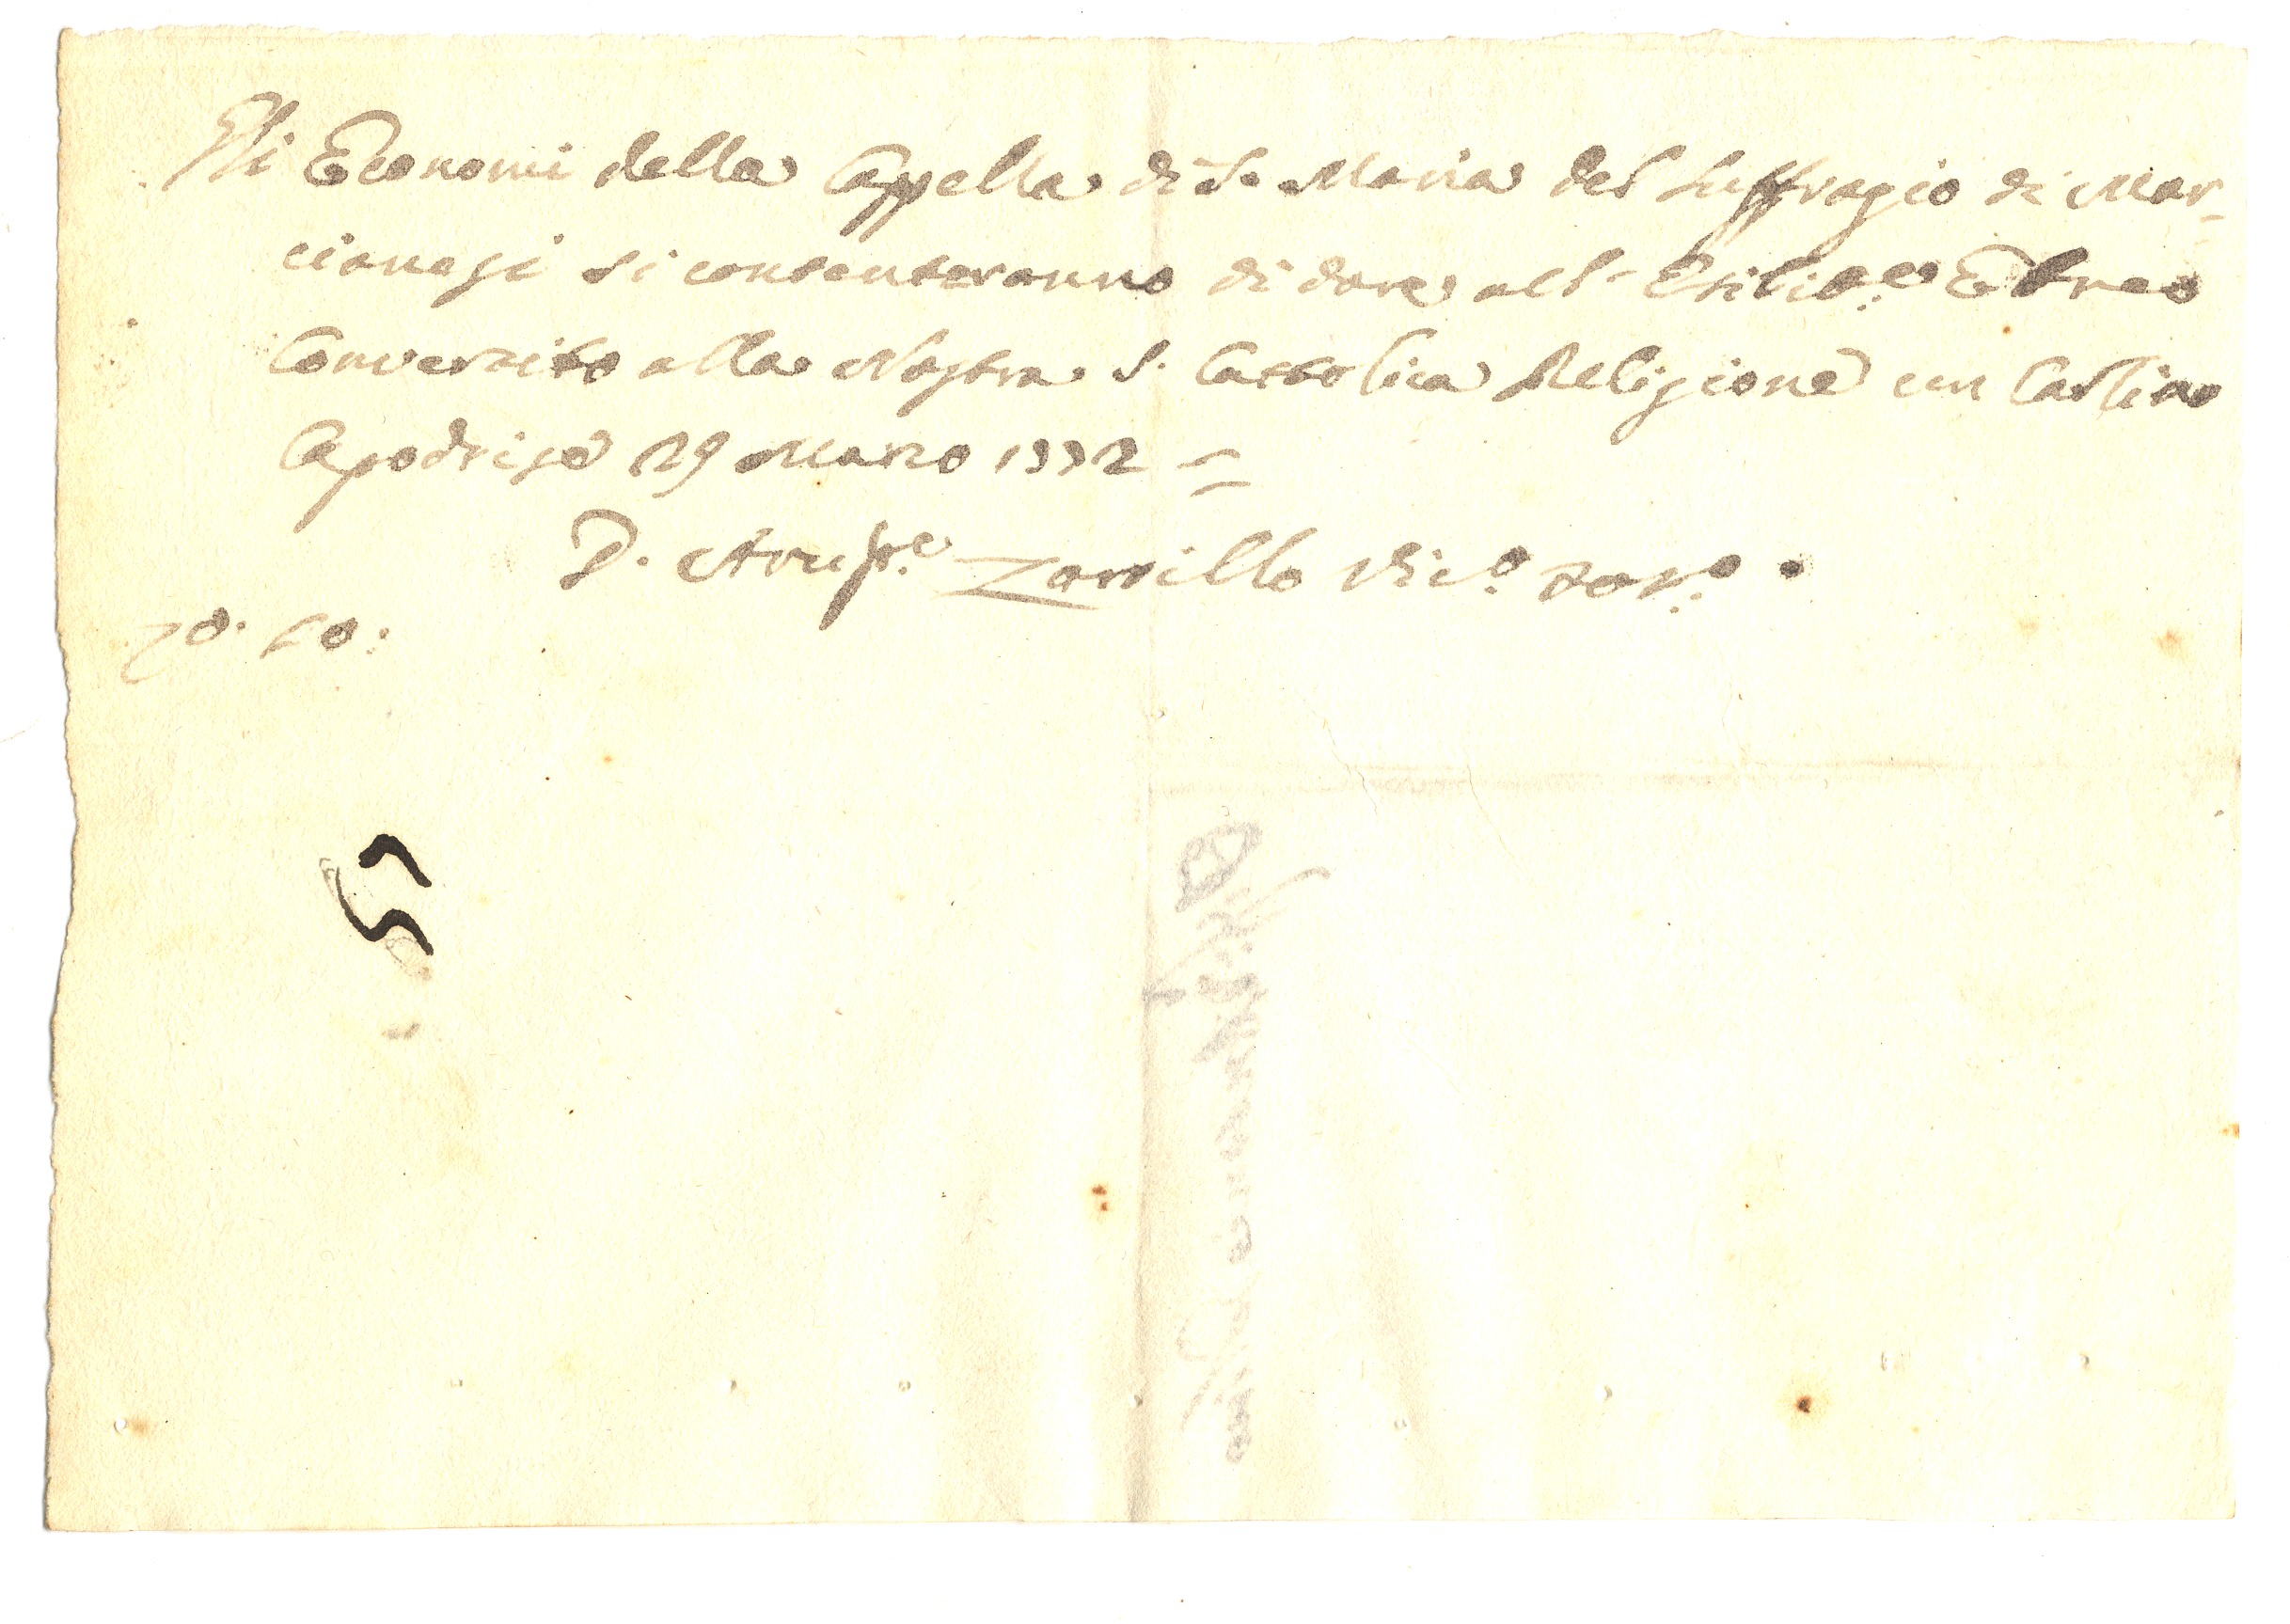 Gli Economi della Cappella di S. Maria del Suffragio di Mar-
cianesi si contenteranno di dare all' Ebreo
Convertito alla Nostra S. Cattolica Religione un Carlino
Capodriso 29 Marzo 1772 =
D. Zarrillo Vic.o For.o
57